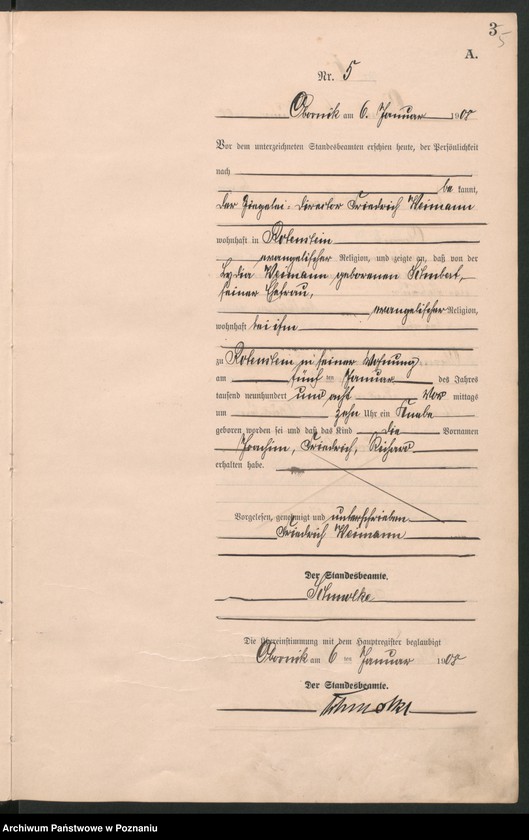 3
5
A.
Nr. 5
Obornik am 6. Januar 1908
Vor dem unterzeichneten Standesbeamten erschien heute, der Persönlichkeit
nach
be kannt,
der Ziegelei-Director Friedrich Weimann
wohnhaft in Rotenstein
evangelischer Religion, und zeigte an, daß von der
Lydia Weimann geborenen
seiner Ehefrau,
evangelischer Religion,
wohnhaft bei ihm
zu Rotenstein in seiner Wohnung
am fünf ten Januar des Jahres
tausend neunhundert und acht Vor mittags
um zehn Uhr ein Knabe
geboren worden sei und daß das Kind die Vornamen
Joachim, Friedrich, Richard
erhalten habe.
Vorgelesen, genehmigt und unterschrieben
Friedrich Weimann
Der Standesbeamte.
Schmolke
Die Übereinstimmung mit dem Hauptregister beglaubigt
Obornik am 6 ten Januar 1908
Der Standesbeamte.
Schmolke
Archiwum Państwowe w Poznaniu